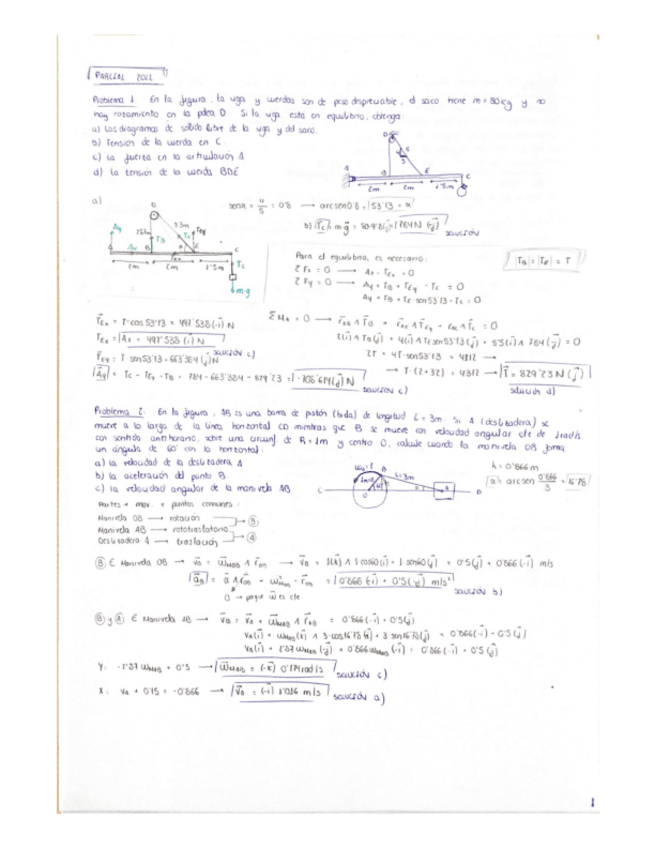 PARCIAL 2022
Problema 1. En la figura, la viga y cuerdas son de peso despreciable, el saco tiene m = 80 kg y no
hay rozamiento en la polea D. Si la viga esta en equilibrio, obtenga:
a) Los diagramas de solido libre de la viga y del saco.
b) Tension de la cuerda en C.
c) La fuerza en la articulación A
d) La tension de la cuerda BDE
A B E C
2m 2m 1'5m
a)
senα = 4/5 = 0'8 → arcsen 0'8 = 53'13 = α
b) Tc = m g = 784 N (j) SOLUCIÓN
Para el equilibrio, es necesario:
|TB| = |TE| = T
Σ Fx = 0 → Ax - TEx = 0
Σ Fy = 0 → Ay + TB + TEy - Tc = 0
Ay + TB + TE sen 53'13 - Tc = 0
D
A B E C
2m 2m 1'5m
m·g
TEx = T·cos 53'13 = 497'538 (-i) N
TEx = Ax = 497'538 (i) N
SOLUCIÓN c)
TEy = T sen 53'13 = 663'384 (j) N
Ay = Tc - TEy - TB = 784 - 663'384 - 829'23 = - 708'614 (j) N
SOLUCIÓN c)
Σ MA = 0 → rAB ∧ TB + rAE ∧ TEy + rAC ∧ Tc = 0
2(i) ∧ TB(j) + 4(i) ∧ TE sen 53'13 (j) + 5'5(i) ∧ 784 (j) = 0
2T + 4T·sen 53'13 = 4312 →
→ T·(2+3'2) = 4312 → T = 829'23 N (j)
SOLUCIÓN d)
Problema 2. En la figura, AB es una barra de pistón (biela) de longitud L = 3m. Si A (deslizadera) se
mueve a lo largo de la línea horizontal CD mientras que B se mueve con velocidad angular cte de 1rad/s
con sentido antihorario, sobre una circunf de R = 1m y centro O, calcule cuando la manivela OB forma
un ángulo de 60° con la horizontal:
a) La velocidad de la deslizadera A
b) La aceleración del punto B
c) La velocidad angular de la manivela AB
B L=3m
C O A D
h = 0'866 m
α = arcsen 0'866/3 = 16'78
Partes + mov. + puntos comunes:
Manivela OB → rotación
B
Manivela AB → rototraslatorio
A
Deslizadera A → traslación
B ∈ Manivela OB → vB = ωMOB ∧ rOB → vB = 1(k) ∧ 1·cos60(i) + 1·sen60(j) = 0'5(j) + 0'866 (-i) m/s
aB = α ∧ rOB - ω²MOB · rOB = 0'866 (-j) + 0'5 (-i) m/s²
SOLUCIÓN b)
0 → porque ω es cte
B y A ∈ Manivela AB → vB = vA + ωMAB ∧ rAB = 0'866(-i) + 0'5(j)
vA(i) + ωMAB(k) ∧ 3·cos16'78 (i) + 3·sen16'78(j) = 0'866(-i) + 0'5(j)
vA(i) + 2'87 ωMAB(-j) + 0'866 ωMAB(-i) = 0'866(-i) + 0'5(j)
Y: -2'87 ωMAB = 0'5 → ωMAB = (-k) 0'174 rad/s
SOLUCIÓN c)
X: vA + 0'15 = -0'866 → vA = (-i) 1'016 m/s
SOLUCIÓN a)
1